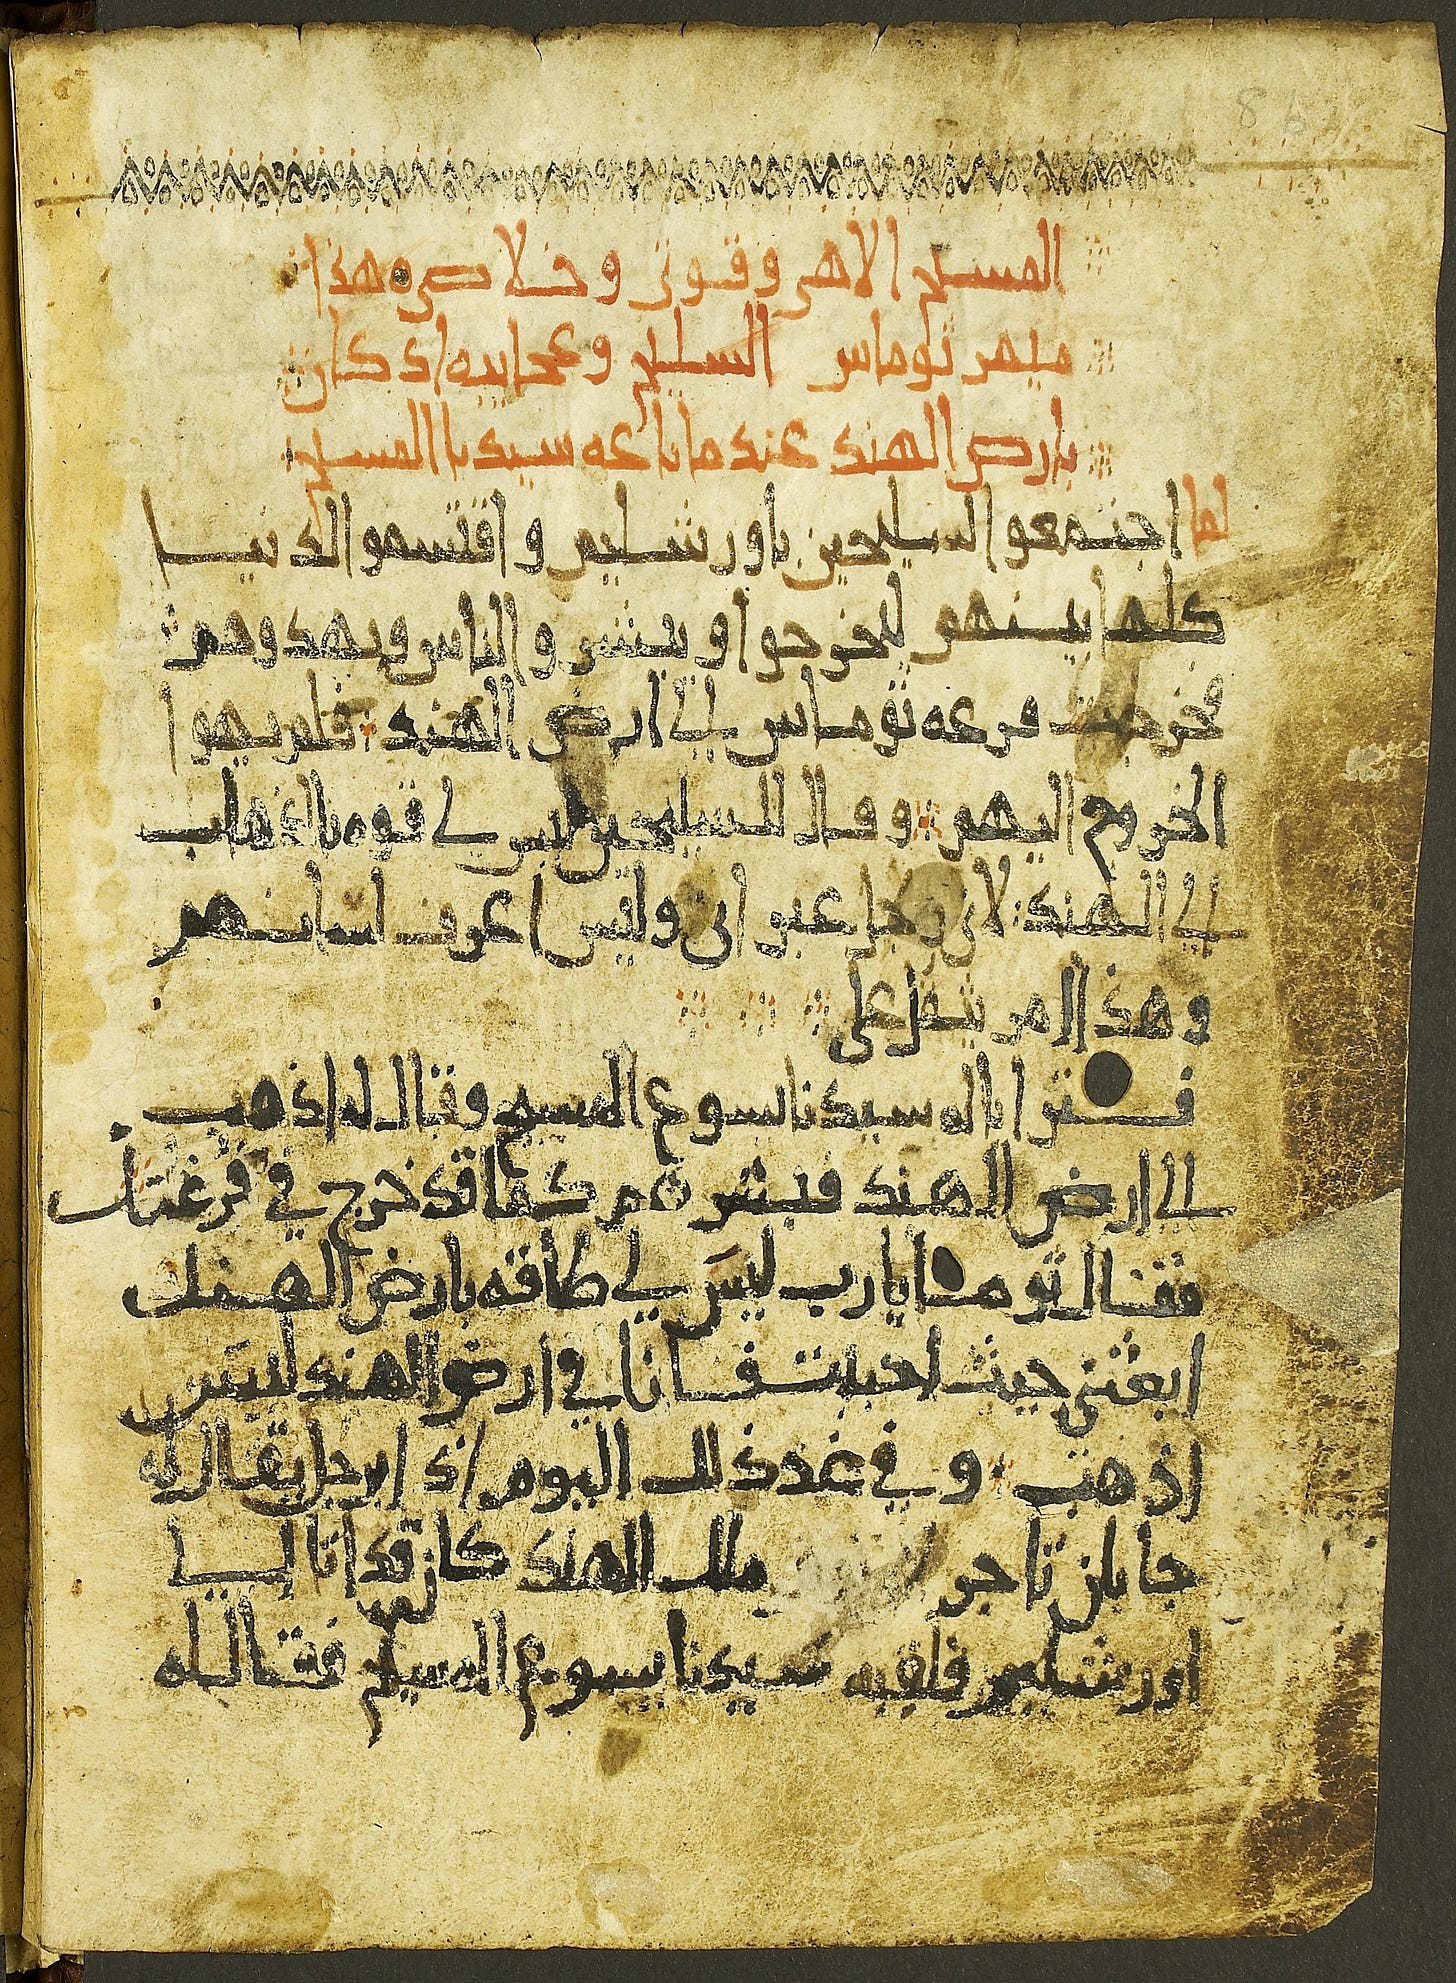 المسيح الاهي وقوتي وخلاصي هذا
ميمر توماس السليح وعجايبه اذ كان
بارض الهند عندما باعه سيدنا المسيح
لما اجتمعو السليحين باورشليم واقتسمو الدنيا
كلها بينهم ليخرجوا ويبشرو الناس ويهدوهم
فخرجت قرعه توماس الي ارض الهند فلم يهوا
الخروج اليهم وقال للسليحين ليس لي قوه بالذهاب
الي الهند لاني رجل عبراني وليس اعرف لسانهم
وهذا الامر يثقل علي
فترايا له سيدنا يسوع المسيح وقال له اذهب
الي ارض الهند فبشرهم كما قد خرج في قرعتك
فقال توما يا رب ليس لي طاقه بارض الهند
ابعثني حيث احببت فانا في ارض الهند ليس
اذهب وفي غد ذلك اليوم اذا برجل يقال له
حابان تاجر ملك الهند كان قد اتا الي
اورشليم فلقيه سيدنا يسوع المسيح فقال له